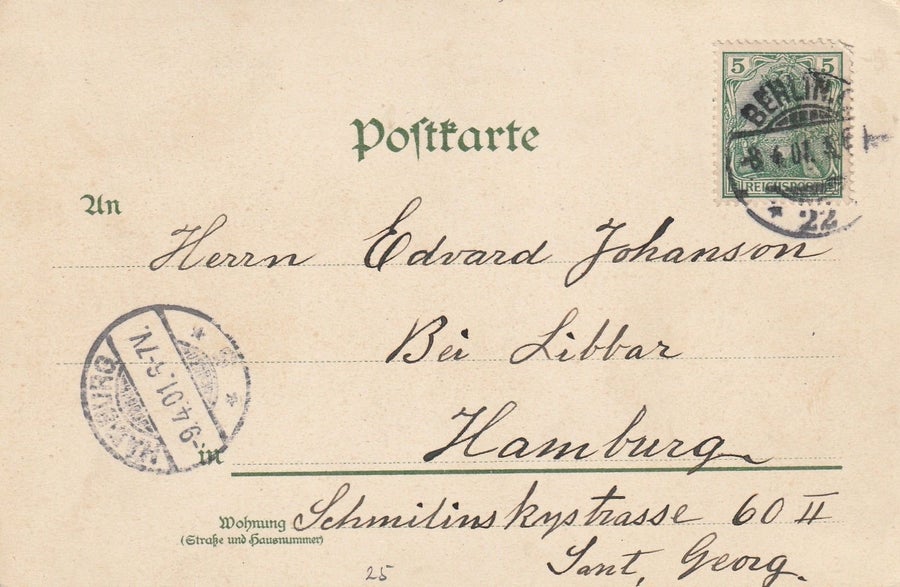 Postkarte
5 5
BERLIN.
8.4.01.
REICHSPOST
22
An
Herrn Edvard Johanson
Bei Libbar
HAMBURG
9.4.01.6-7V.
in Hamburg
Wohnung Schmilinskystrasse 60 II
(Straße und Hausnummer)
Sant, Georg.
25